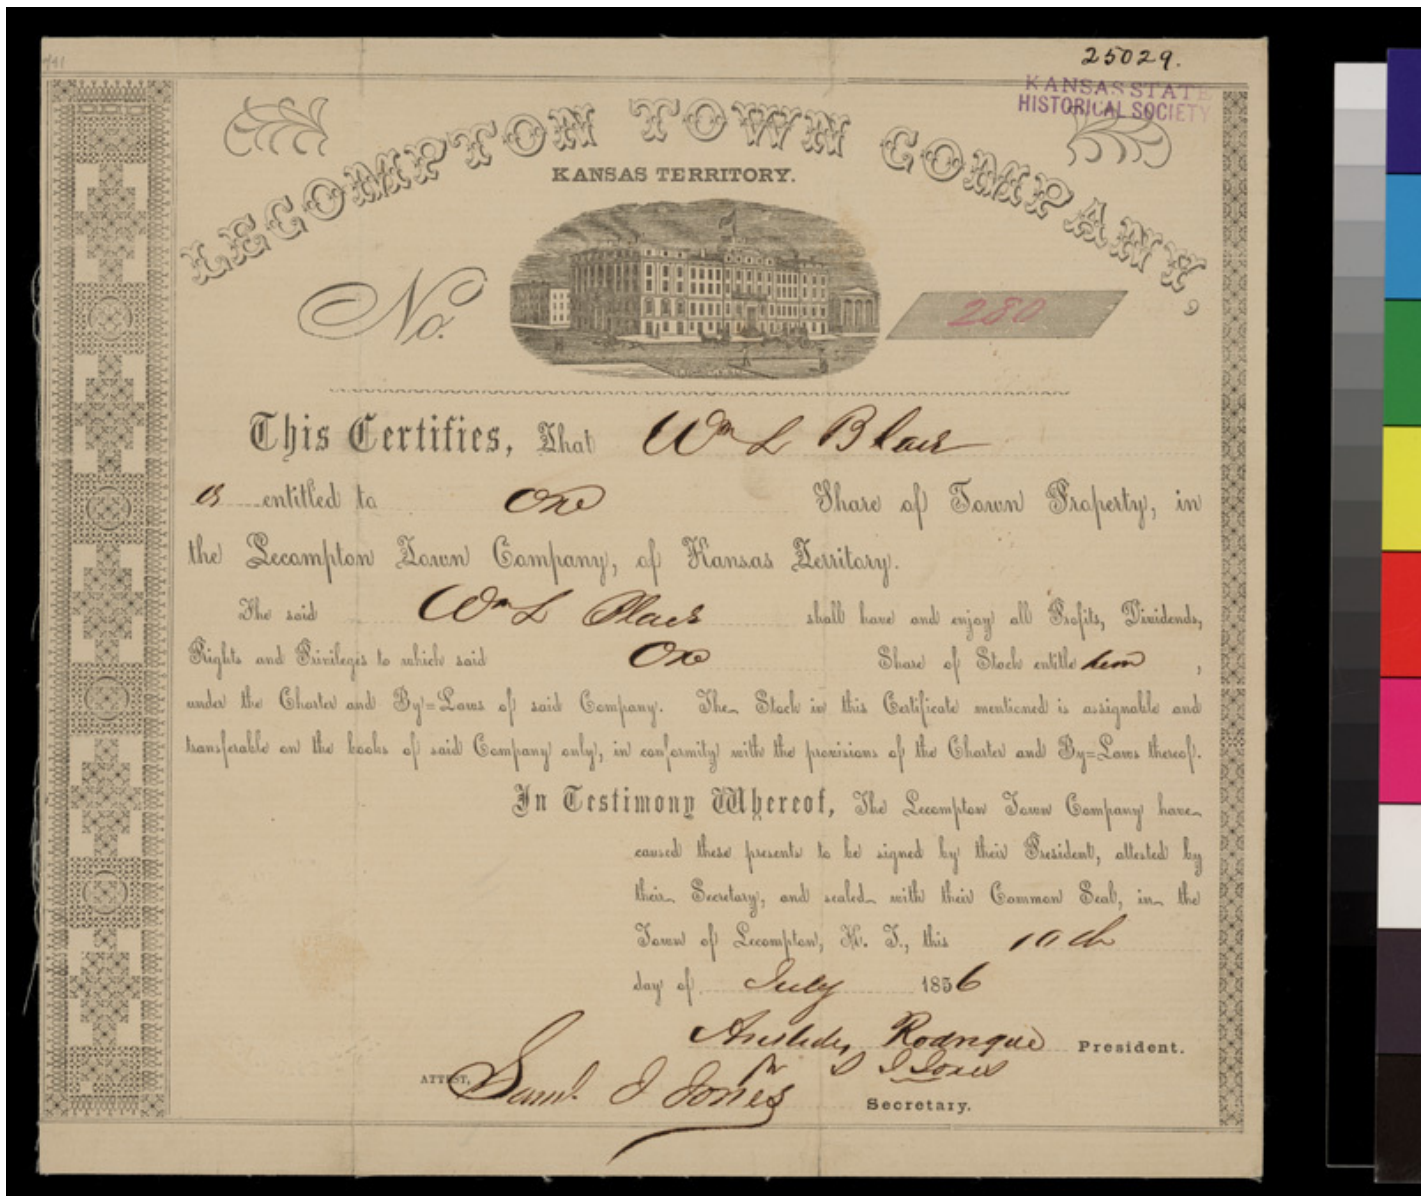 25029.
KANSAS STATE
HISTORICAL SOCIETY
LECOMPTON TOWN COMPANY,
KANSAS TERRITORY.
No. 280
This Certifies, That Wm L Blair
is entitled to One Share of Town Property, in
the Lecompton Town Company, of Kansas Territory.
The said Wm L Blair shall have and enjoy all Profits, Dividends,
Rights and Privileges to which said One Share of Stock entitle him,
under the Charter and By=Laws of said Company. The Stock in this Certificate mentioned is assignable and
transferable on the books of said Company only, in conformity with the provisions of the Charter and By=Laws thereof.
In Testimony Whereof, The Lecompton Town Company have
caused these presents to be signed by their President, attested by
their Secretary, and sealed with their Common Seal, in the
Town of Lecompton, K. T., this 10th
day of July 1856
Aristides Rodrique President.
pr S J Jones
ATTEST, Saml. J Jones Secretary.